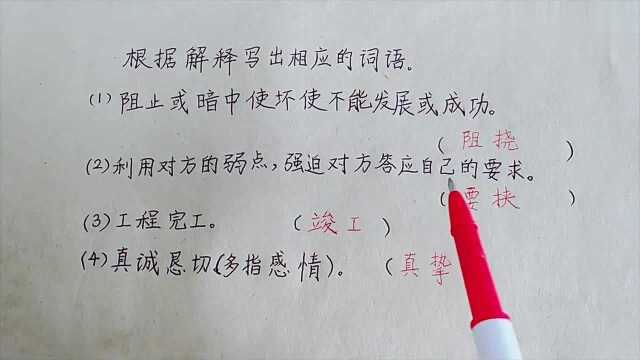 根据解释写出相应的词语。
(1)阻止或暗中使坏使不能发展或成功。
(阻挠)
(2)利用对方的弱点,强迫对方答应自己的要求。
(要挟)
(3)工程完工。 (竣工)
(4)真诚恳切(多指感情)。 (真挚